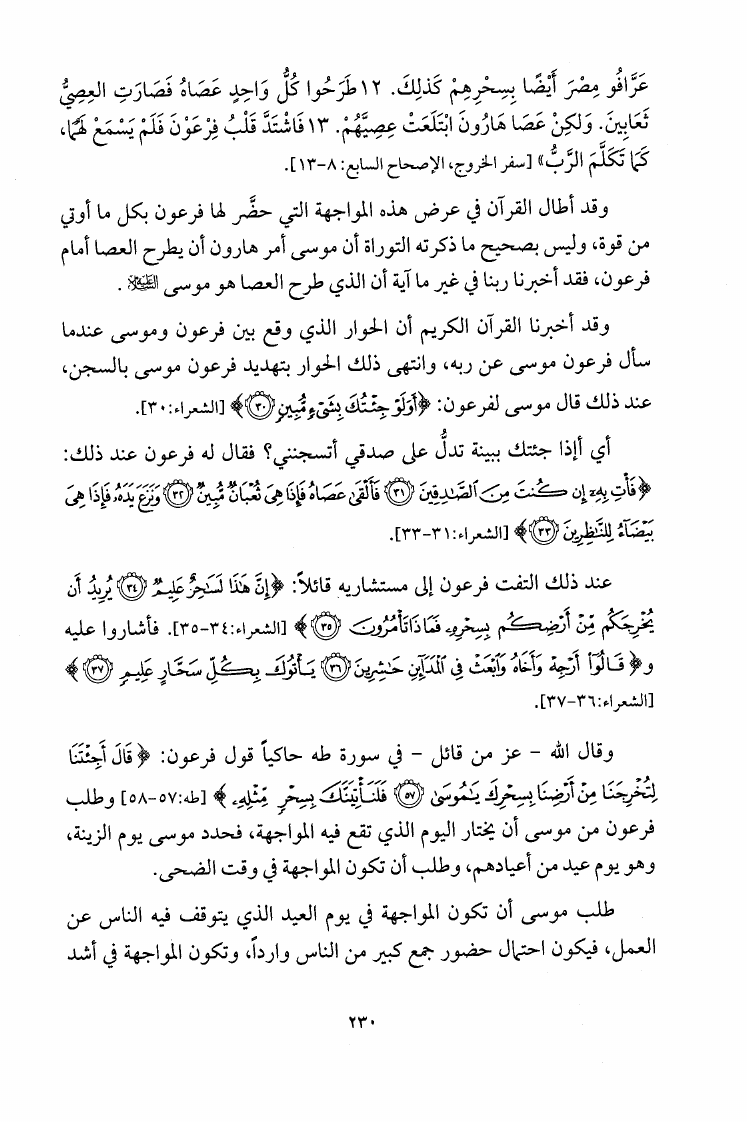 عَرَّافُو مِصْرَ أَيْضًا بِسِحْرِهِمْ كَذلِكَ. ١٢ طَرَحُوا كُلُّ وَاحِدٍ عَصَاهُ فَصَارَتِ العِصِيُّ
ثَعَابِينَ. وَلكِنْ عَصَا هَارُونَ ابْتَلَعَتْ عِصِيَّهُمْ. ١٣ فَاشْتَدَّ قَلْبُ فِرْعَوْنَ فَلَمْ يَسْمَعْ لَهُمَا،
كَمَا تَكَلَّمَ الرَّبُّ» [سفر الخروج، الإصحاح السابع: ٨-١٣].
وقد أطال القرآن في عرض هذه المواجهة التي حضَّر لها فرعون بكل ما أوتي
من قوة، وليس بصحيح ما ذكرته التوراة أن موسى أمر هارون أن يطرح العصا أمام
فرعون، فقد أخبرنا ربنا في غير ما آية أن الذي طرح العصا هو موسى عليه السلام .
وقد أخبرنا القرآن الكريم أن الحوار الذي وقع بين فرعون وموسى عندما
سأل فرعون موسى عن ربه، وانتهى ذلك الحوار بتهديد فرعون موسى بالسجن،
عند ذلك قال موسى لفرعون: ﴿أَوَلَوْ جِئْتُكَ بِشَىْءٍ مُّبِينٍ ٣٠﴾ [الشعراء:٣٠].
أي أإذا جئتك ببينة تدلُّ على صدقي أتسجنني؟ فقال له فرعون عند ذلك:
﴿فَأْتِ بِهِۦٓ إِن كُنتَ مِنَ ٱلصَّٰدِقِينَ ٣١ فَأَلْقَىٰ عَصَاهُ فَإِذَا هِىَ ثُعْبَانٌ مُّبِينٌ ٣٢ وَنَزَعَ يَدَهُۥ فَإِذَا هِىَ
بَيْضَآءُ لِلنَّٰظِرِينَ ٣٣﴾ [الشعراء:٣١-٣٣].
عند ذلك التفت فرعون إلى مستشاريه قائلاً: ﴿إِنَّ هَٰذَا لَسَٰحِرٌ عَلِيمٌ ٣٤ يُرِيدُ أَن
يُخْرِجَكُم مِّنْ أَرْضِكُم بِسِحْرِهِۦ فَمَاذَا تَأْمُرُونَ ٣٥﴾ [الشعراء:٣٤-٣٥]. فأشاروا عليه
و﴿قَالُوٓا۟ أَرْجِهْ وَأَخَاهُ وَٱبْعَثْ فِى ٱلْمَدَآئِنِ حَٰشِرِينَ ٣٦ يَأْتُوكَ بِكُلِّ سَحَّارٍ عَلِيمٍ ٣٧﴾
[الشعراء:٣٦-٣٧].
وقال الله – عز من قائل – في سورة طه حاكياً قول فرعون: ﴿قَالَ أَجِئْتَنَا
لِتُخْرِجَنَا مِنْ أَرْضِنَا بِسِحْرِكَ يَٰمُوسَىٰ ٥٧ فَلَنَأْتِيَنَّكَ بِسِحْرٍ مِّثْلِهِۦ﴾ [طه:٥٧-٥٨] وطلب
فرعون من موسى أن يختار اليوم الذي تقع فيه المواجهة، فحدد موسى يوم الزينة،
وهو يوم عيد من أعيادهم، وطلب أن تكون المواجهة في وقت الضحى.
طلب موسى أن تكون المواجهة في يوم العيد الذي يتوقف فيه الناس عن
العمل، فيكون احتمال حضور جمع كبير من الناس وارداً، وتكون المواجهة في أشد
٢٣٠